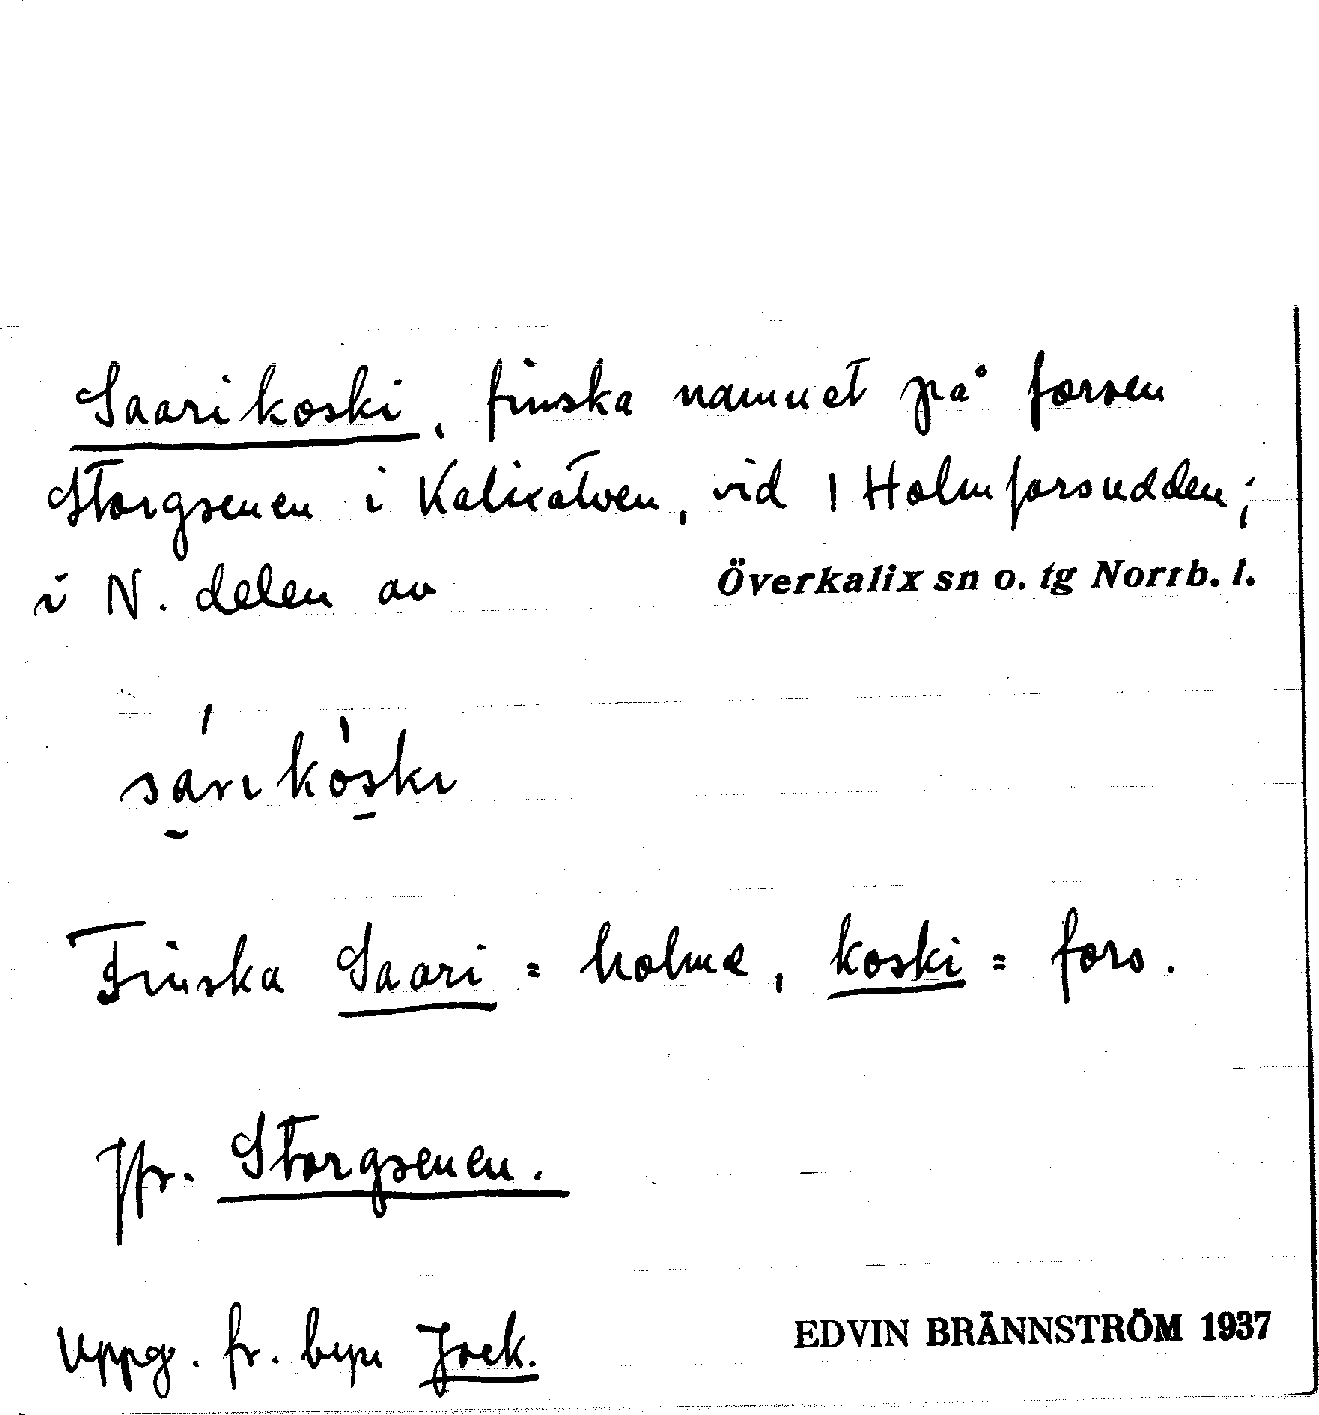 Saarikoski, finska namnet på forsen
Storgsenen i Kalixälven, vid 1 Holmforsudden;
i N. delen av Överkalix sn o. tg Norrb. l.
sári kóski
Finska Saari = holme, koski = fors.
Jfr. Storgsenen.
Uppg. fr. byn Jock. EDVIN BRÄNNSTRÖM 1937